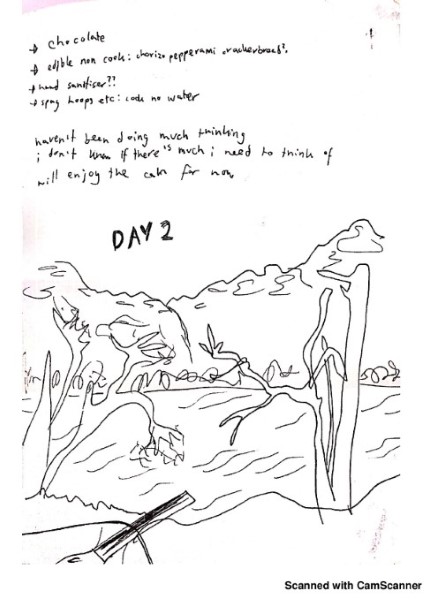 → chocolate
→ edible non cook: chorizo pepperami crackerbread?.
→ hand sanitiser??
→ spag hoops etc: cook no water
haven't been doing much thinking
i don't know if there is much i need to think of
will enjoy the calm for now
DAY 2
Scanned with CamScanner